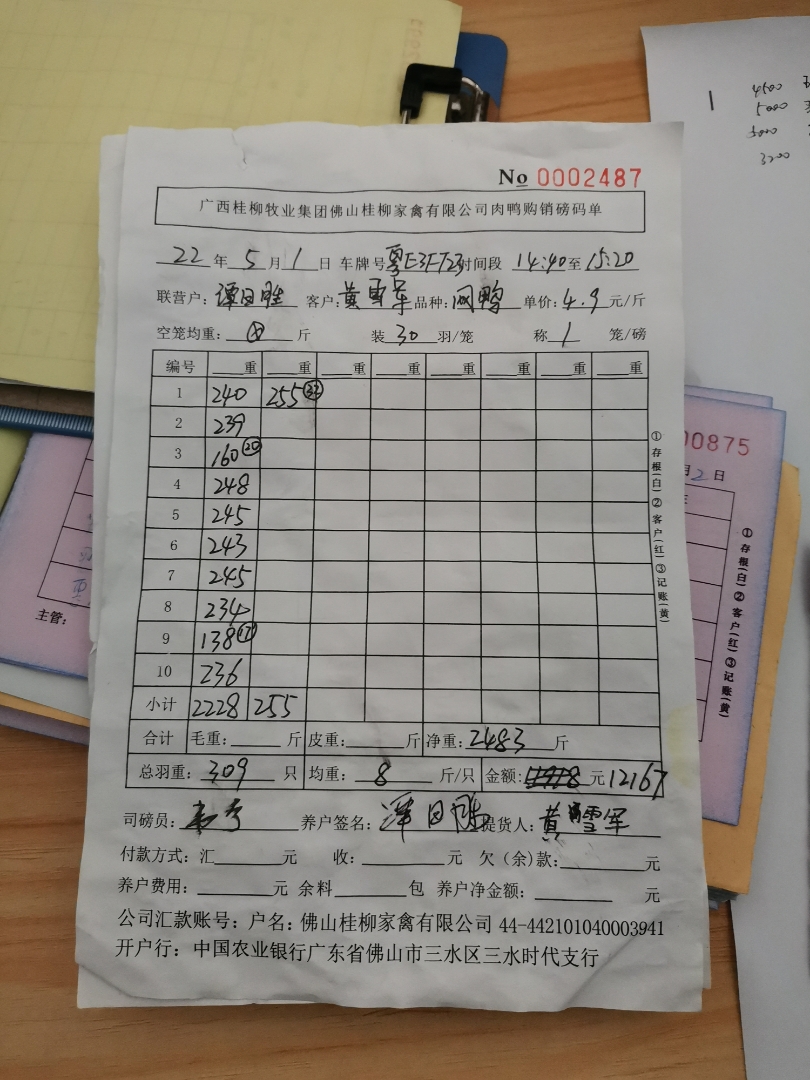 4500
5000
5000
3200
No 0002487
广西桂柳牧业集团佛山桂柳家禽有限公司肉鸭购销磅码单
22 年 5 月 1 日 车牌号 粤E3FT23 时间段 14:40 至 15:20
联营户: 谭日胜 客户: 黄雪军 品种: 肉鸭 单价: 4.9 元/斤
空笼均重: 斤 装 30 羽/笼 称 1 笼/磅
编号 重 重 重 重 重 重 重 重
1 240 255 (32)
2 239
3 160 (20)
4 248
5 245
6 243
7 245
8 234
9 138 (17)
10 236
小计 2228 255
合计 毛重: 斤 皮重: 斤 净重: 2483 斤
总羽重: 309 只 均重: 8 斤/只 金额: 元 12167
司磅员: 养户签名: 谭日胜 提货人: 黄雪军
付款方式: 汇 元 收: 元 欠(余)款: 元
养户费用: 元 余料 包 养户净金额: 元
公司汇款账号: 户名: 佛山桂柳家禽有限公司 44-442101040003941
开户行: 中国农业银行广东省佛山市三水区三水时代支行
①存根(白)②客户(红)③记账(黄)
主管:
00875
月 2 日
①存根(白)②客户(红)③记账(黄)